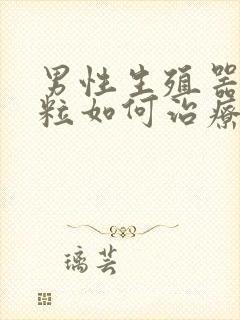 男性生殖器
粒如何治療
璃芸